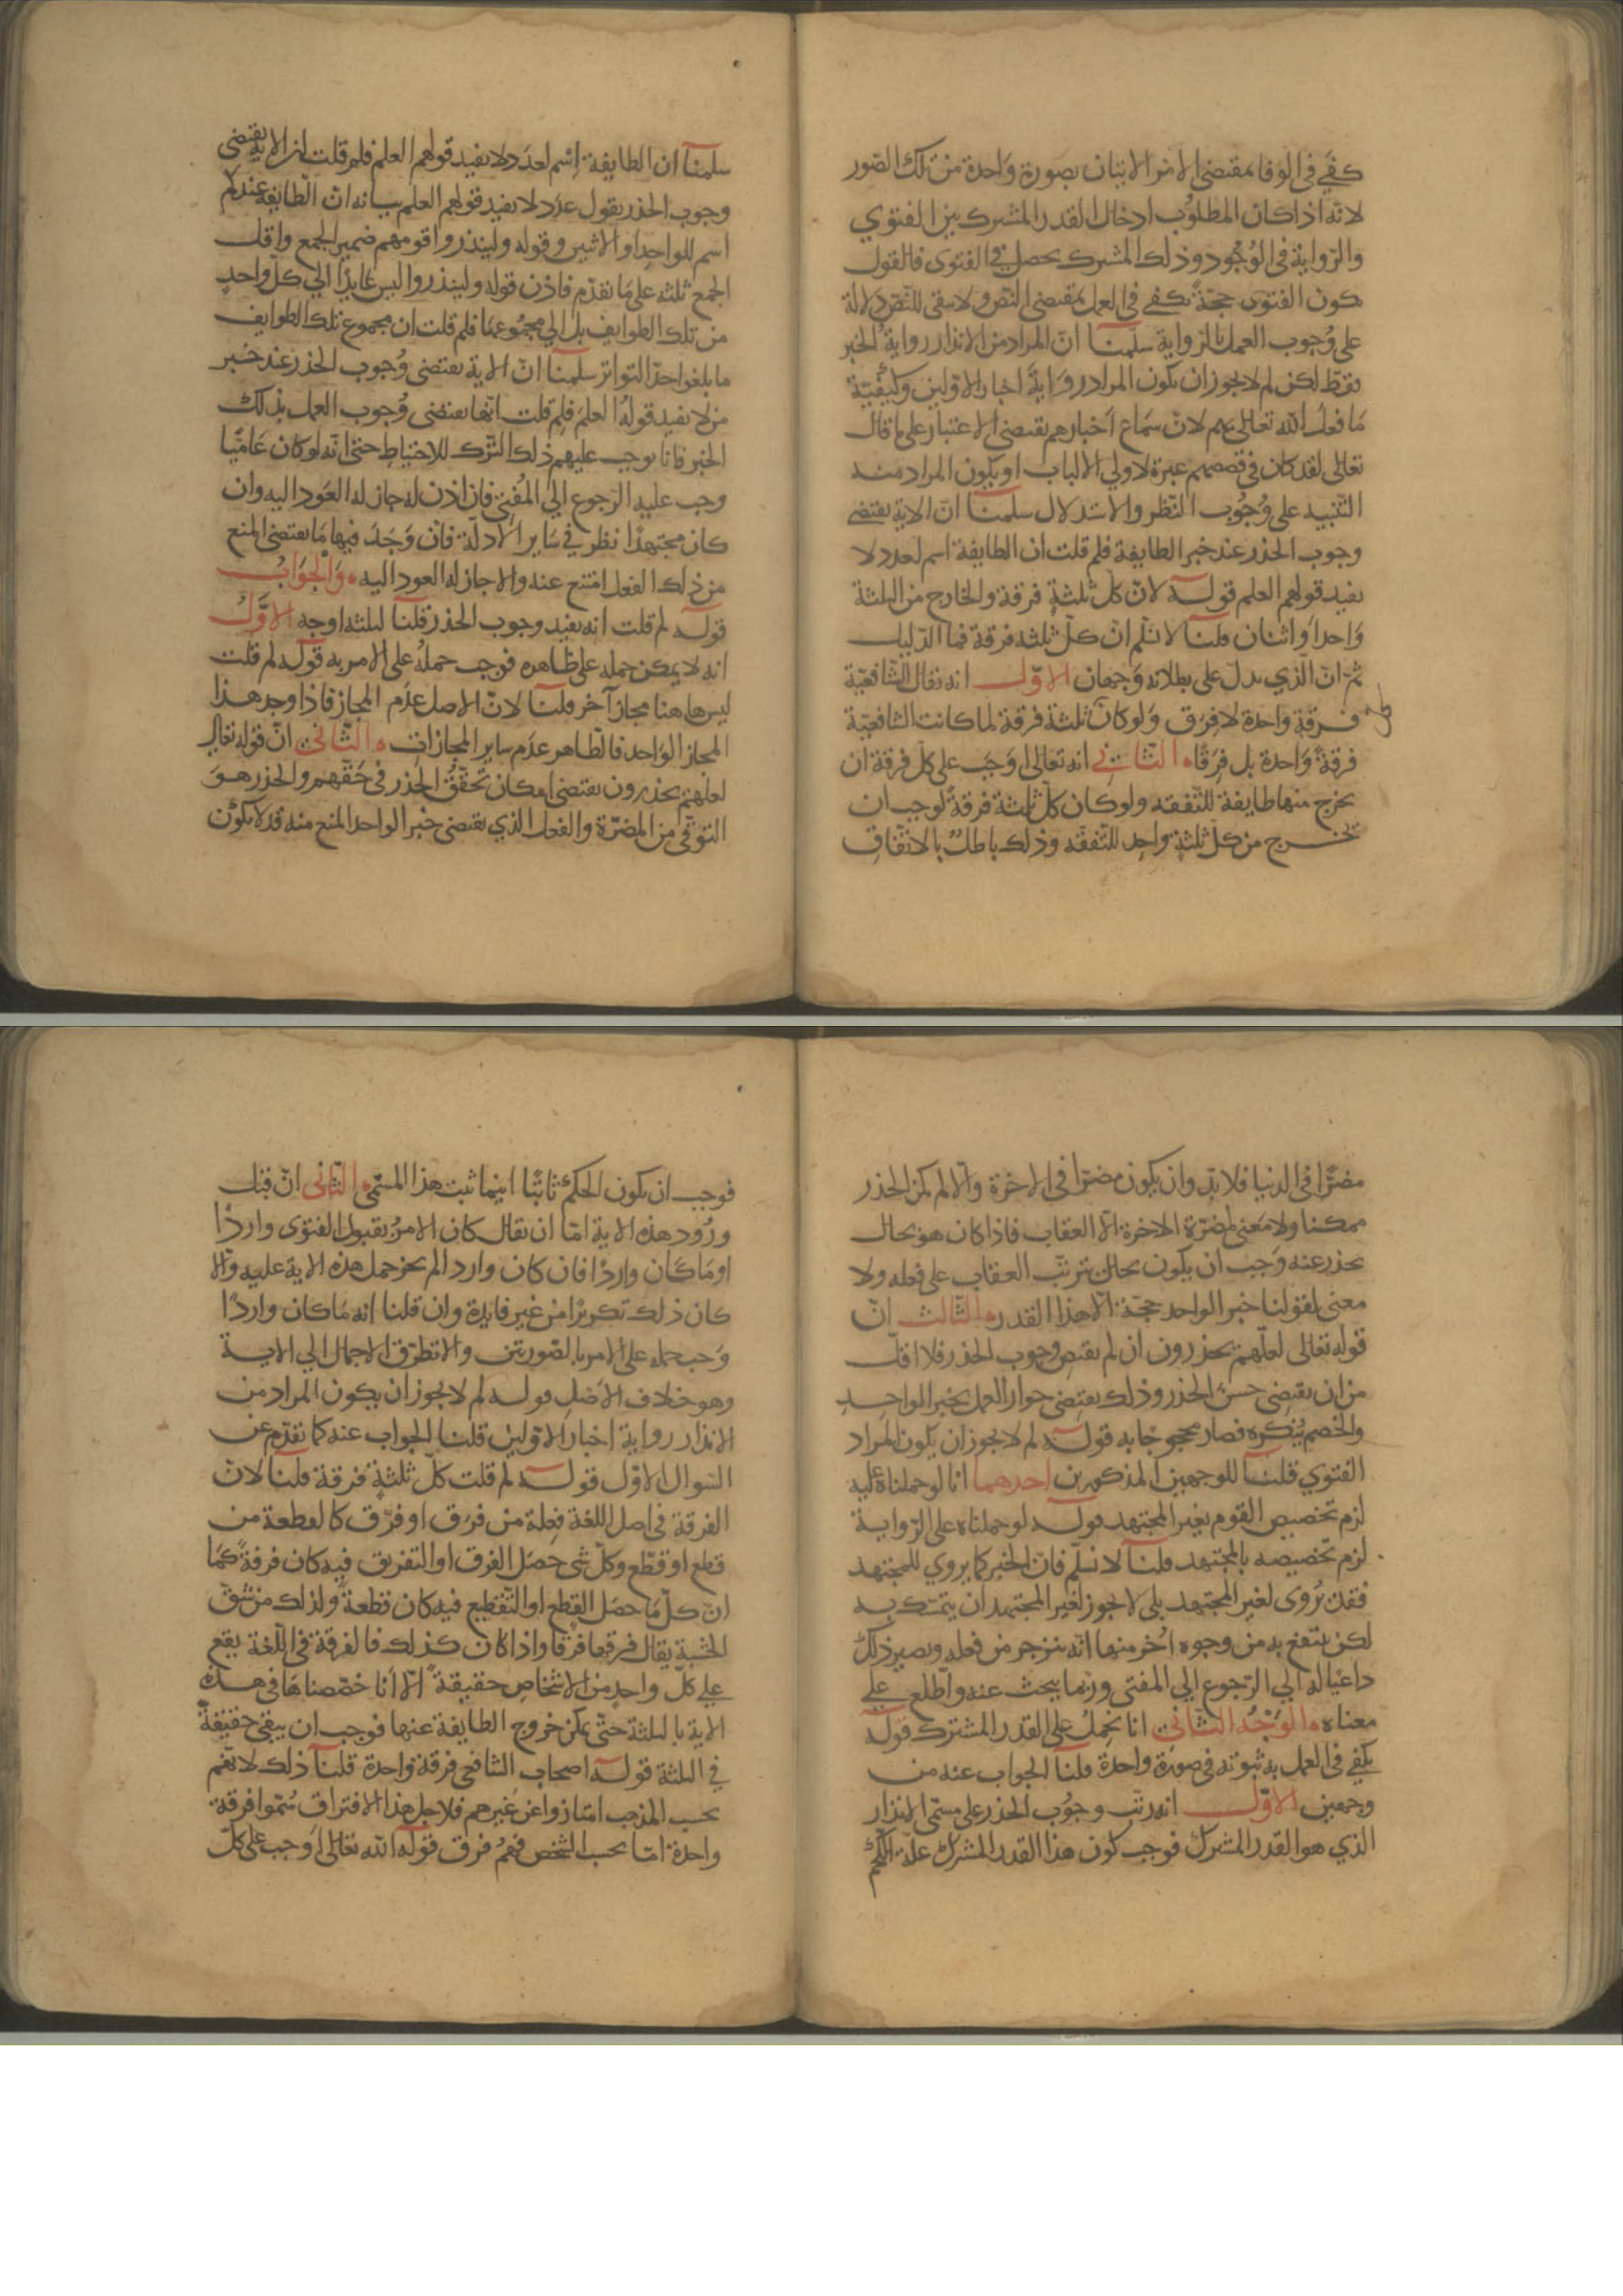 كفى في الوفا بمقتضى الامر الاتيان بصورة واحدة من تلك الصّور
لانّه اذا كان المطلوب ادخال القدر المشترك بين الفتوي
والرّواية في الوُجود وذلك المشترك يحصل في الفتوى فالقول
بكون الفتوى حجّةً يكفى في العمل بمقتضى النّص ولا يبقى للنّص دلالة
على وُجوب العمل بالرّواية سلّمنا انّ المراد من الانذار رواية الخبر
فقط لكن لم لا يجوز ان يكون المراد رواية اخبار الاوّلين وكيفيّة
مَا فعل الله تعالى بهم لانّ سَماع اَخبارهم يقتضى الاعتبار على ما قال
تعالى لقد كان في قصصهم عبرة لاولي الالباب او يكون المراد منه
التّنبيه على وُجُوب النّظر والاستدلال سلّمنا انّ الاية يقتضى
وجوب الحذر عند خبر الطايفة فلم قلت ان الطايفة اسم لعدد لا
يفيد قولهم العلم قوله لانّ كلّ ثلثةٍ فرقة والخارج من الثلثة
واحد او اثنان قلنا لا نسلّم انّ كلّ ثلثه فرقة فما الدّليل
ثمّ انّ الّذي يدلّ على بطلانه وَجهان الاوّل انه يقال الشّافعيّة
فرقة واحدة لا فِرَق وَلو كانَ كل ثلثة فرقة لما كانت الشافعيّة
فرقةً وَاحدة بل فِرَقًا الثّاني انه تعالى اَوجَب على كلّ فرقة ان
يخرج منها طايفة للتّفقه ولو كان كلّ ثلثة فرقةً لوجب ان
يخرج من كلّ ثلثةٍ واحد للتّفقّه وذلك باطلٌ بالاتّفاقِ
سلّمنا ان الطايفة اِسْم لعدَد لا يفيد قولهم العلم فلم قلت ان الاية يقتضى
وجوب الحذر بقول عدَد لا يفيد قولهم العلم بيانه انّ الطّايفة عندكم
اسم للواحد او الاثنين وقوله ولينذروا قومهم ضمير الجمع واقلّ
الجمع ثلثه على مَا تقدّم فاذن قوله ولينذروا ليس عايدًا الي كلّ واحدٍ
من تلك الطوايف بل الي مجمُوعها فلم قلت ان مجموع تلك الطوايف
ما بلغوا حدّ التواتر سلّمنا انّ الاية يقتضى وُجوب الحذر عند خبر
من لا يفيد قولهُ العلمَ فلِم قلت انّها يقتضى وُجوب العمل بذلك
الخبر فانا نوجب عليهم ذلك التّرك للاحتياطِ حتى انّه لو كان عَاميًّا
وجب عليه الرّجوع الى المُفتي فان اذن له جاز له العَود اليه وان
كان مجتهدًا نظر في سَاير الادلّة فان وَجَدَ فيها مَا يقتضى المنع
من ذلك الفعل امتنع عنه والا جاز له العود اليه وَالْجَوَابُ
قوله لم قلت انه يفيد وجوب الحذر قلنا لثلثه اوجه الاوَّلُ
انه لا يمكن حمله على ظاهره فوجب حملهُ على الامر به قوله لم قلت
ليس هاهنا مجاز آخر قلنا لانّ الاصل عدَم المجاز فاذا وجد هذا
المجاز الواحد فالظاهر عدَم ساير المجازات الثّاني انّ قوله تعالى
لعلّهم يحذرون يقتضى امكان تحقّق الحذر في حَقّهم والحذر هوَ
التوقّى من المضرّة والفعل الذي يقتضى خبر الواحد المنع منه قد لا يكون
مضرًّا في الدنيا فلا بدّ وان يكون مضرّا في الاخرة والّا لم يكن الحذر
ممكنا ولا معنى لمضرّة الاخرة الّا العقاب فاذا كان هو بحال
يحذر عنه وَجب ان يكون بحال يترتّب العقاب على فعله ولا
معنى لقولنا خبر الواحد حجّة الّا هذا القدر الثّالث انّ
قوله تعالى لعلّهم يحذرون ان لم يقتض وجوب الحذر فلا اقلّ
من ان يقتضى حسن الحذر وذلك يقتضى جواز العمل بخبر الواحدِ
والخصم يُنكره فصار محجوجًا به قوله لم لا يجوز ان يكون المراد
الفتوي قلنا للوجهين المذكورين احدهما انا لو حملناهُ عليه
لزم تخصيص القوم بغير المجتهد قوله لو حملناه على الرّواية
لزم تخصيصه بالمجتهد قلنا لا نسلّم فانّ الخبر كما يروي للمجتهد
فقد يُروى لغير المجتهد بلى لا يجوز لغير المجتهد ان يتمسّك به
لكن ينتفع به من وجوه اُخر منها انّه ينزجر من فعله ويصير ذلك
داعيًا له الي الرّجوع الي المفتى وربما يبحث عنه واطّلع على
معناه الوَجْهُ الثّاني انا نحملُ على القدر المشترك قوله
يكفى في العمل به ثبوته في صورة واحدة قلنا الجواب عنه من
وجهين الاوّل انه رتّب وجُوب الحذر على مسمّى الانذار
الذي هو القدر المشترك فوجب كون هذا القدر المشترك علّة للحكم
فوجب ان يكون الحكم ثابتًا اينما ثبت هذا المسمّى الثّاني انّ قبل
ورُود هذه الاية امّا ان يقال كان الامرُ بقبول الفتوى واردًا
او مَا كانَ واردًا فان كان واردا لم يجز حمل هذه الاية عليه والّا
كان ذلك تكريرًا من غير فايدة وان قلنا انه مَا كان واردًا
وَجب حمله على الامر بالصّورتين والا تطرّق الاجمال الي الاية
وهو خلاف الاصل قوله لم لا يجوز ان يكون المراد من
الانذار رواية اخبار الاوّلين قلنا الجواب عنه كما تقدّم عن
السّوال الاوّل قوله لم قلت كلّ ثلثةٍ فُرقة قلنا لانّ
الفرقة في اصل اللغة فعلة من فرَق او فرّق كالقطعة من
قطع او قطّع وكلّ شي حصَل الفرق او التفريق فيه كان فرقةً كما
انّ كلّ مَا حصَل القطع او التّقطيع فيه كان قطعةً ولذلك من شقّ
الخشبة يقال فرقها فرقا واذا كان كذلك فالفرقة في اللّغة يقع
على كلّ واحد من الاشخاص حقيقةً الّا انا خصّصناها في هذه
الاية بالثلثة حتّى يمكن خروج الطايفة عنها فوجب ان يبقى حقيقةً
في الثلثة قوله اصحاب الشافعي فرقة واحدة قلنا ذلك لانّهم
بحسب المذهب امتازوا عن غيرهم فلاجل هذا الافتراق سُمّوا فرقة
واحدة امّا بحسب الشخص فهمُ فرق قوله الله تعالى اَوجب على كلّ